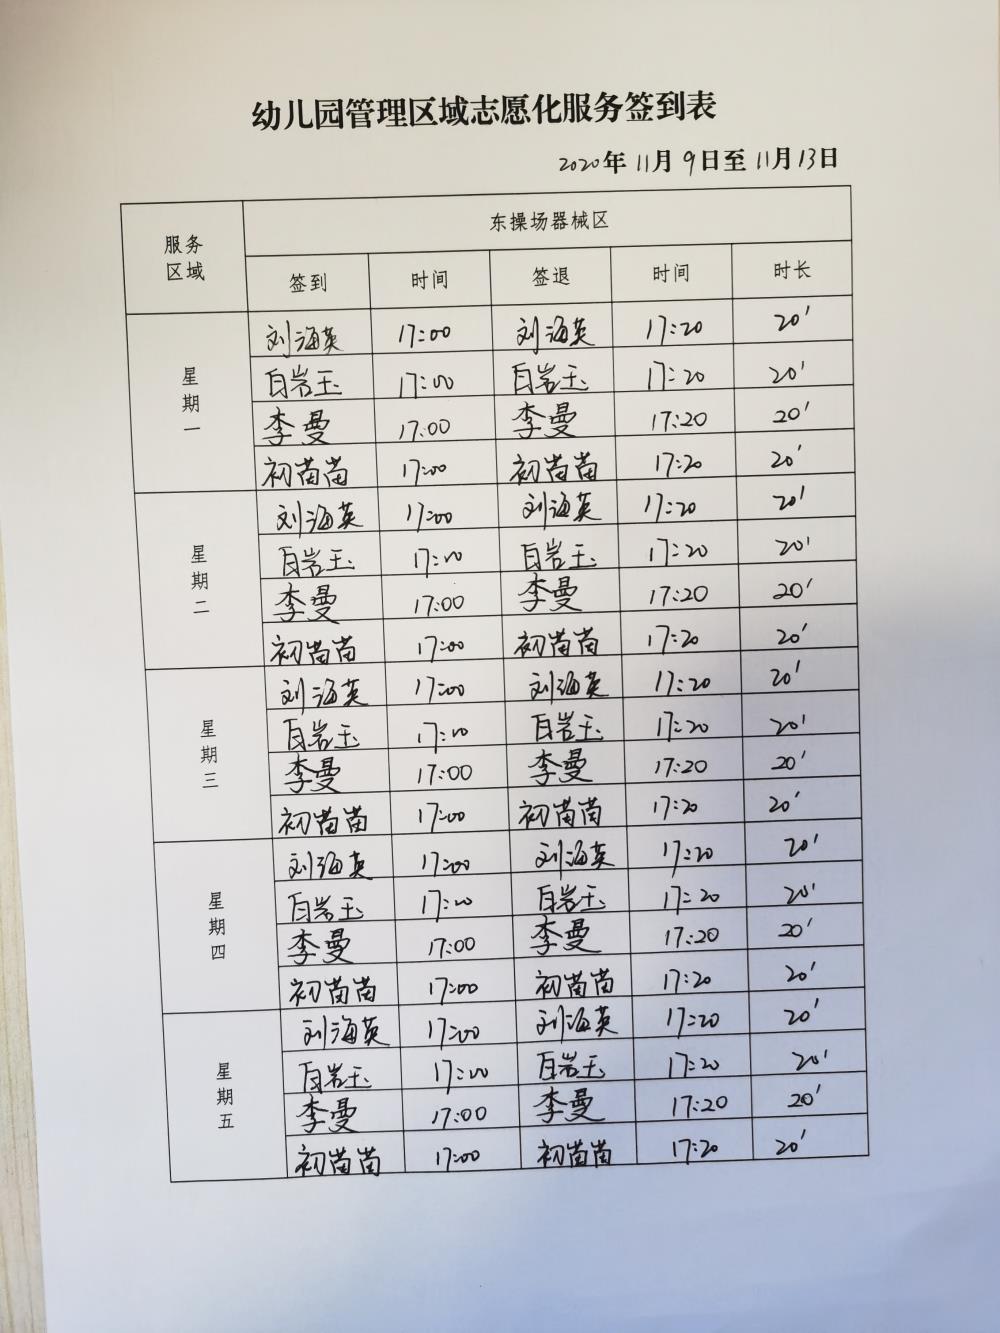 幼儿园管理区域志愿化服务签到表
2020年11月9日至11月13日
服务区域 东操场器械区
签到 时间 签退 时间 时长
星期一
刘海英 17:00 刘海英 17:20 20'
白岩玉 17:00 白岩玉 17:20 20'
李曼 17:00 李曼 17:20 20'
初苗苗 17:00 初苗苗 17:20 20'
星期二
刘海英 17:00 刘海英 17:20 20'
白岩玉 17:00 白岩玉 17:20 20'
李曼 17:00 李曼 17:20 20'
初苗苗 17:00 初苗苗 17:20 20'
星期三
刘海英 17:00 刘海英 17:20 20'
白岩玉 17:00 白岩玉 17:20 20'
李曼 17:00 李曼 17:20 20'
初苗苗 17:00 初苗苗 17:20 20'
星期四
刘海英 17:00 刘海英 17:20 20'
白岩玉 17:00 白岩玉 17:20 20'
李曼 17:00 李曼 17:20 20'
初苗苗 17:00 初苗苗 17:20 20'
星期五
刘海英 17:00 刘海英 17:20 20'
白岩玉 17:00 白岩玉 17:20 20'
李曼 17:00 李曼 17:20 20'
初苗苗 17:00 初苗苗 17:20 20'